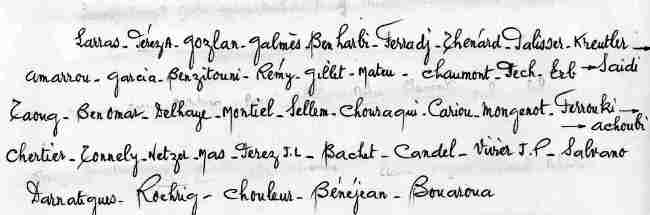 Larras - Pérez A - Gozlan - Galmès - Ben harbi - Ferradj - Thénard - Palisser - Kreutler →
Amarrou - Garcia - Benzitouni - Rémy - Gillet - Mateu - Chaumont - Pech - Erb → Saidi
Zaoug - Ben Omar - Delhaye - Montiel - Sellem - Chouraqui - Cariou - Mongenot - Ferrouki →
→ Achoubi
Chertier - Connely - Netzer - Mas - Perez J.L - Bachet - Candel - Vivier J.P - Salvano
Darnatigues - Roehrig - Chouleur - Bénéjean - Bouaroua